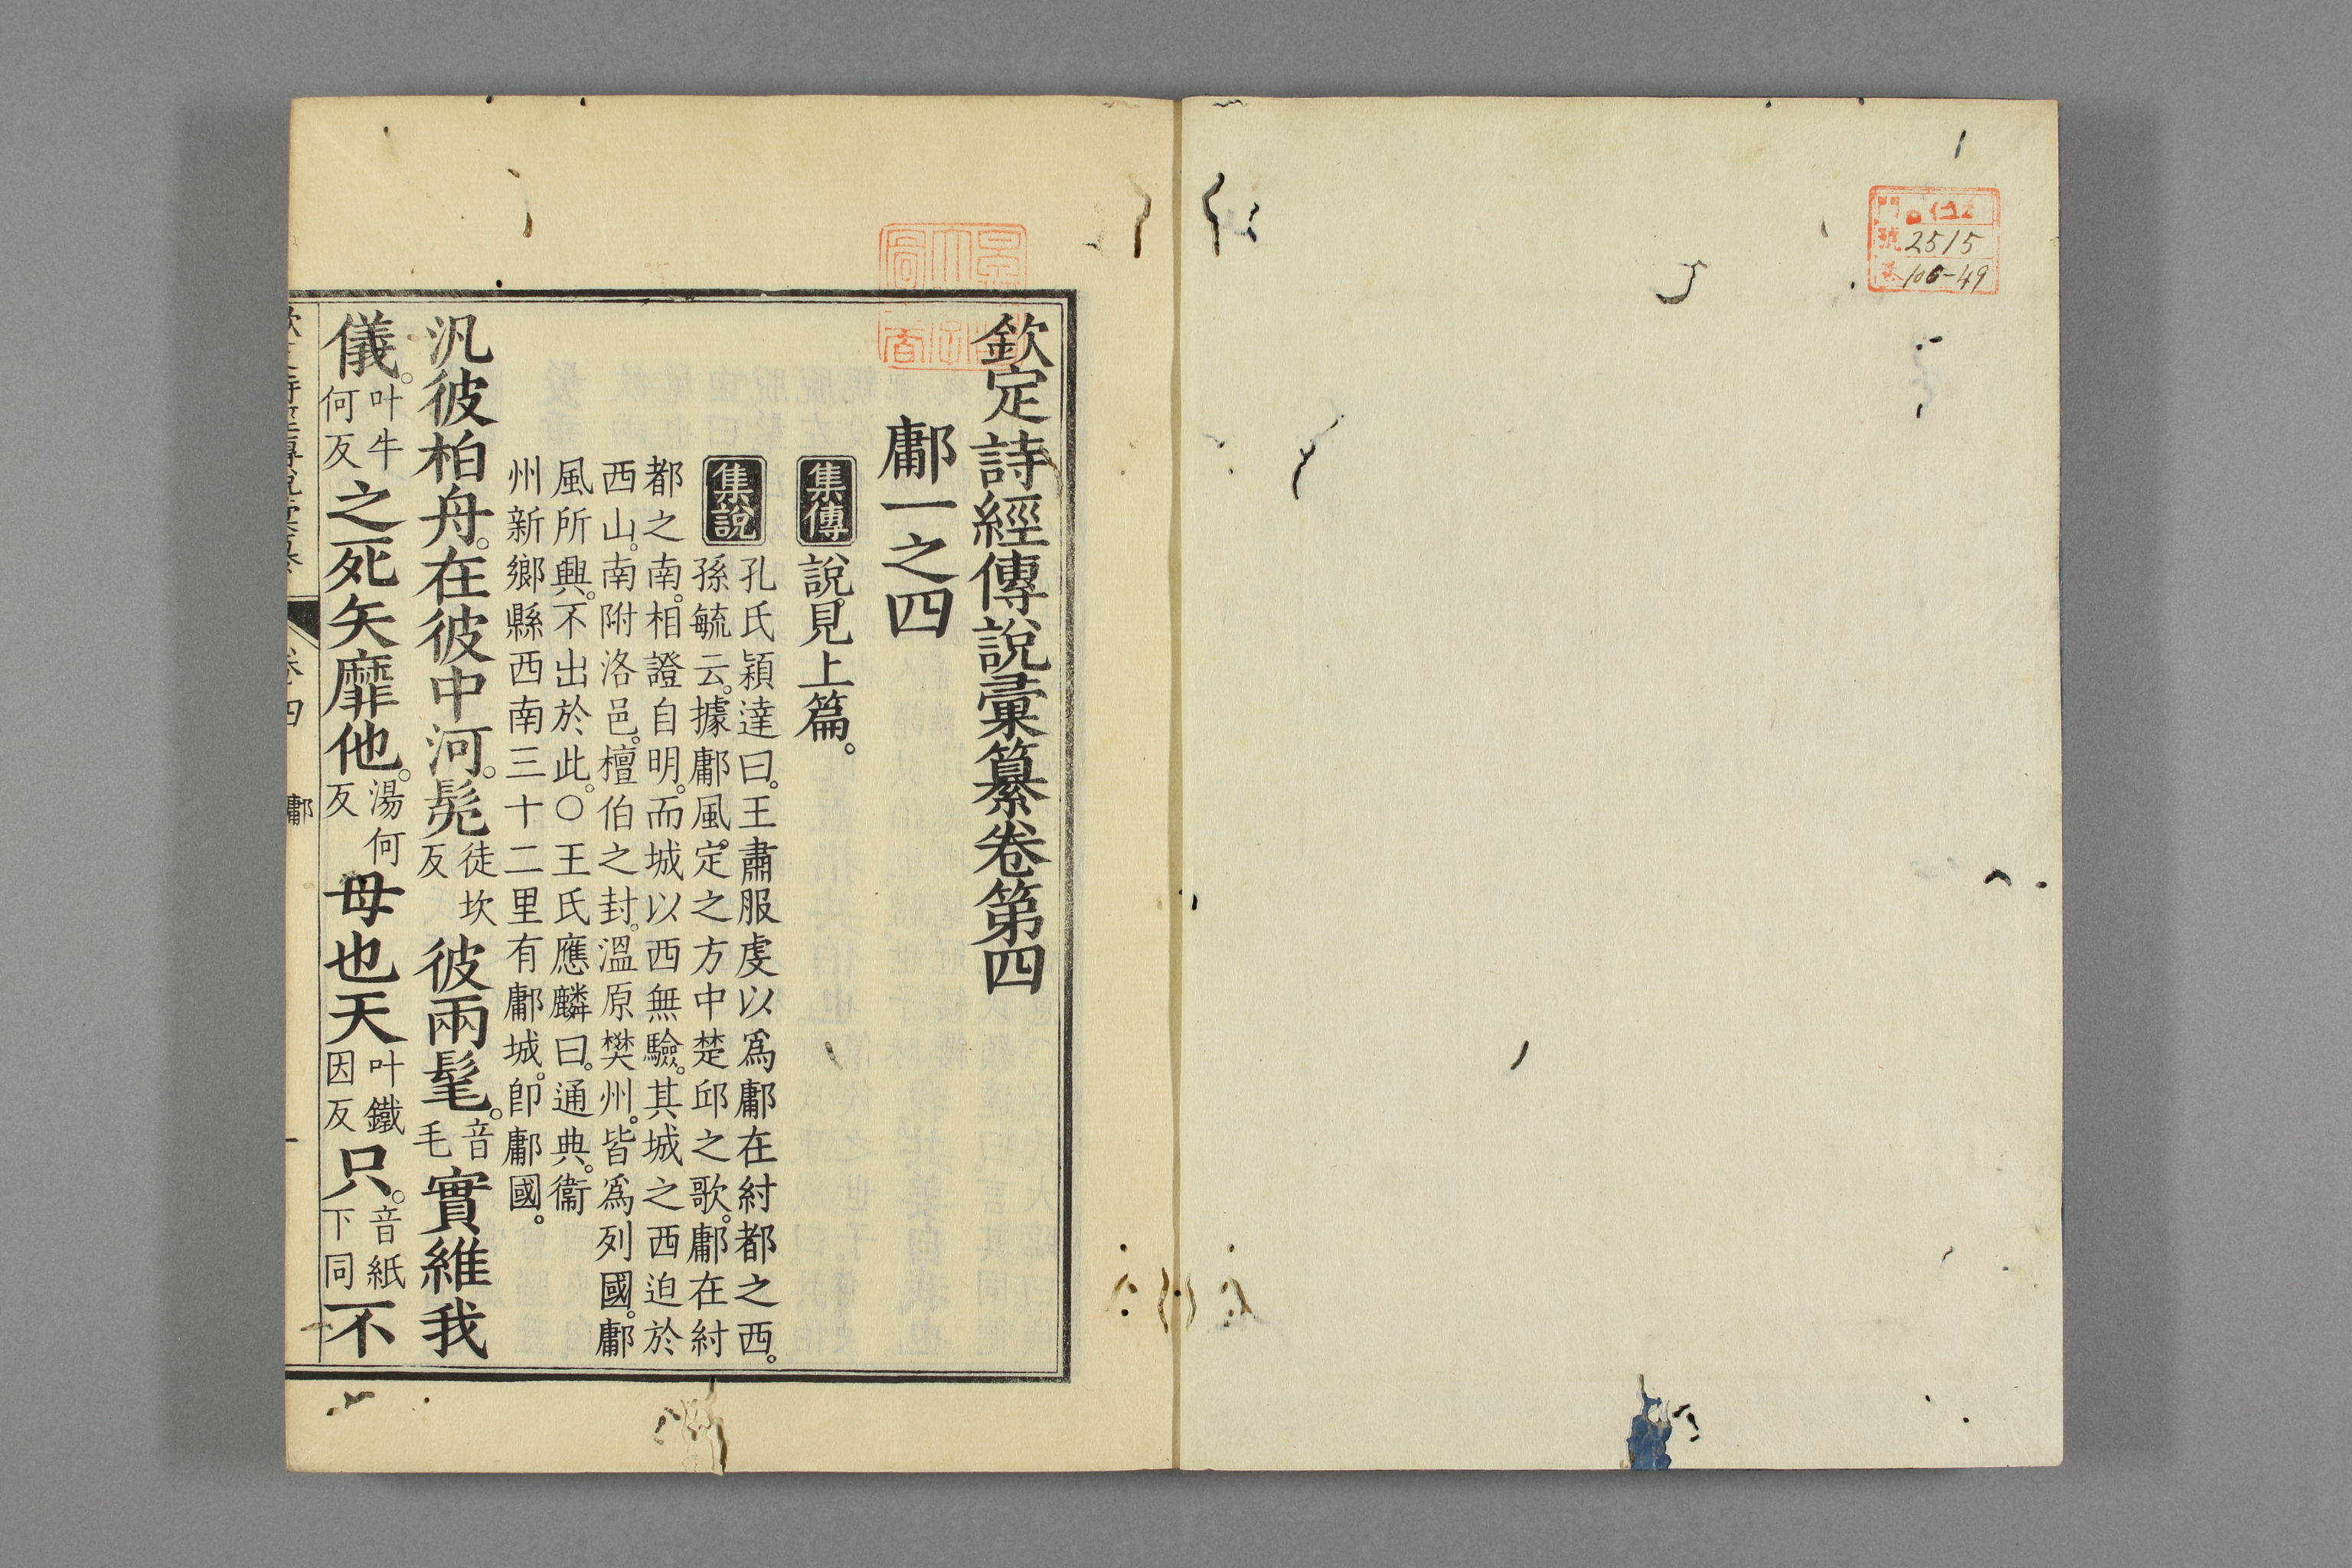 門 仁12
號 2515
卷 106-49
欽定詩經傳說彙纂卷第四
鄘一之四
集傳 說見上篇。
集說 孔氏穎達曰。王肅服虔以爲鄘在紂都之西。
孫毓云。據鄘風。定之方中楚邱之歌。鄘在紂
都之南。相證自明。而城以西無驗。其城之西迫於
西山。南附洛邑。檀伯之封。溫原樊州。皆爲列國。鄘
風所興。不出於此。○王氏應麟曰。通典。衞
州新鄉縣西南三十二里有鄘城。卽鄘國。
汎彼柏舟。在彼中河。髧徒坎反彼兩髦。音毛實維我
儀。叶牛何反之死矢靡他。湯何反母也天叶鐵因反只。音紙下同不
卷四 鄘 一